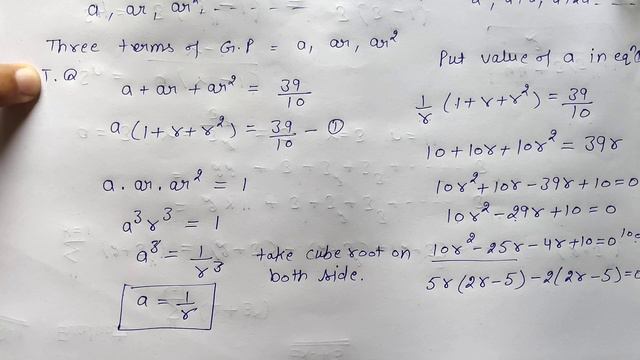 a, ar, ar²,
Three terms of G.P = a, ar, ar²
T.Q
a + ar + ar² = 39/10
= a(1+r+r²) = 39/10 – ①
a . ar . ar² = 1
a³r³ = 1
a³ = 1/r³ take cube root on both side.
a = 1/r
Put value of a in eqⁿ
1/r (1+r+r²) = 39/10
10 + 10r + 10r² = 39r
10r² + 10r - 39r + 10 = 0
10r² - 29r + 10 = 0
10r² - 25r - 4r + 10 = 0
5r(2r-5) - 2(2r-5) =